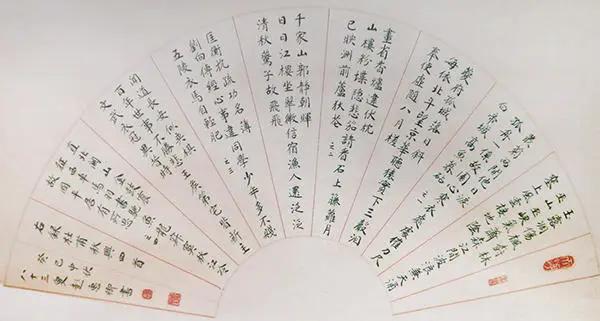 玉露凋傷楓樹林
巫山巫峽氣蕭森江間波浪兼天涌
塞上風雲接地陰
叢菊兩開他日淚
孤舟一繫故園心寒衣處處催刀尺
白帝城高急暮砧
夔府孤城落日斜
每依北斗望京華聽猿實下三聲淚
奉使虛隨八月槎
畫省香爐違伏枕
山樓粉堞隱悲笳請看石上藤蘿月
已映洲前蘆荻花 之二
千家山郭靜朝暉
日日江樓坐翠微信宿漁人還泛泛
清秋燕子故飛飛
匡衡抗疏功名薄
劉向傳經心事違同學少年多不賤
五陵衣馬自輕肥 之三
聞道長安似弈棋
百年世事不勝悲王侯第宅皆新主
文武衣冠異昔時
直北關山金鼓震
征西車馬羽書馳魚龍寂寞秋江冷
故國平居有所思 之四
右錄杜甫秋興四首
癸巳中伏
八十三叟惠卿書